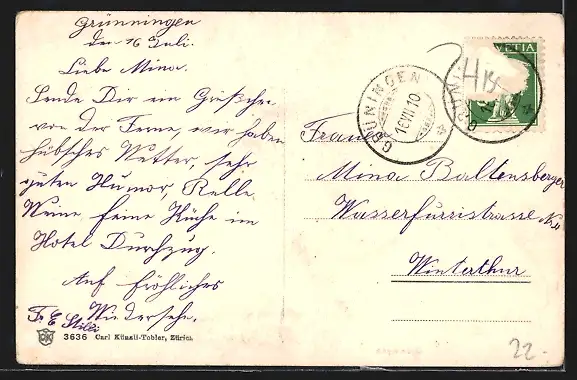 Grünningen
den 16 Juli.
Liebe Mina.
Sende Dir ein Grüßche
von der Ferne, wir haben
hübsches Wetter, sehr
guten Humor, Relle
Weine feine Küche im
Hotel Durchzug.
Auf fröhliches
Wiedersehn.
Fr. E.
3636 Carl Künzli-Tobler, Zürich
HELVETIA
GRÜNINGEN
16 VII 10
Frauen
Mina Baltensberger
Wasserfurristrasse No
Winterthur
22-